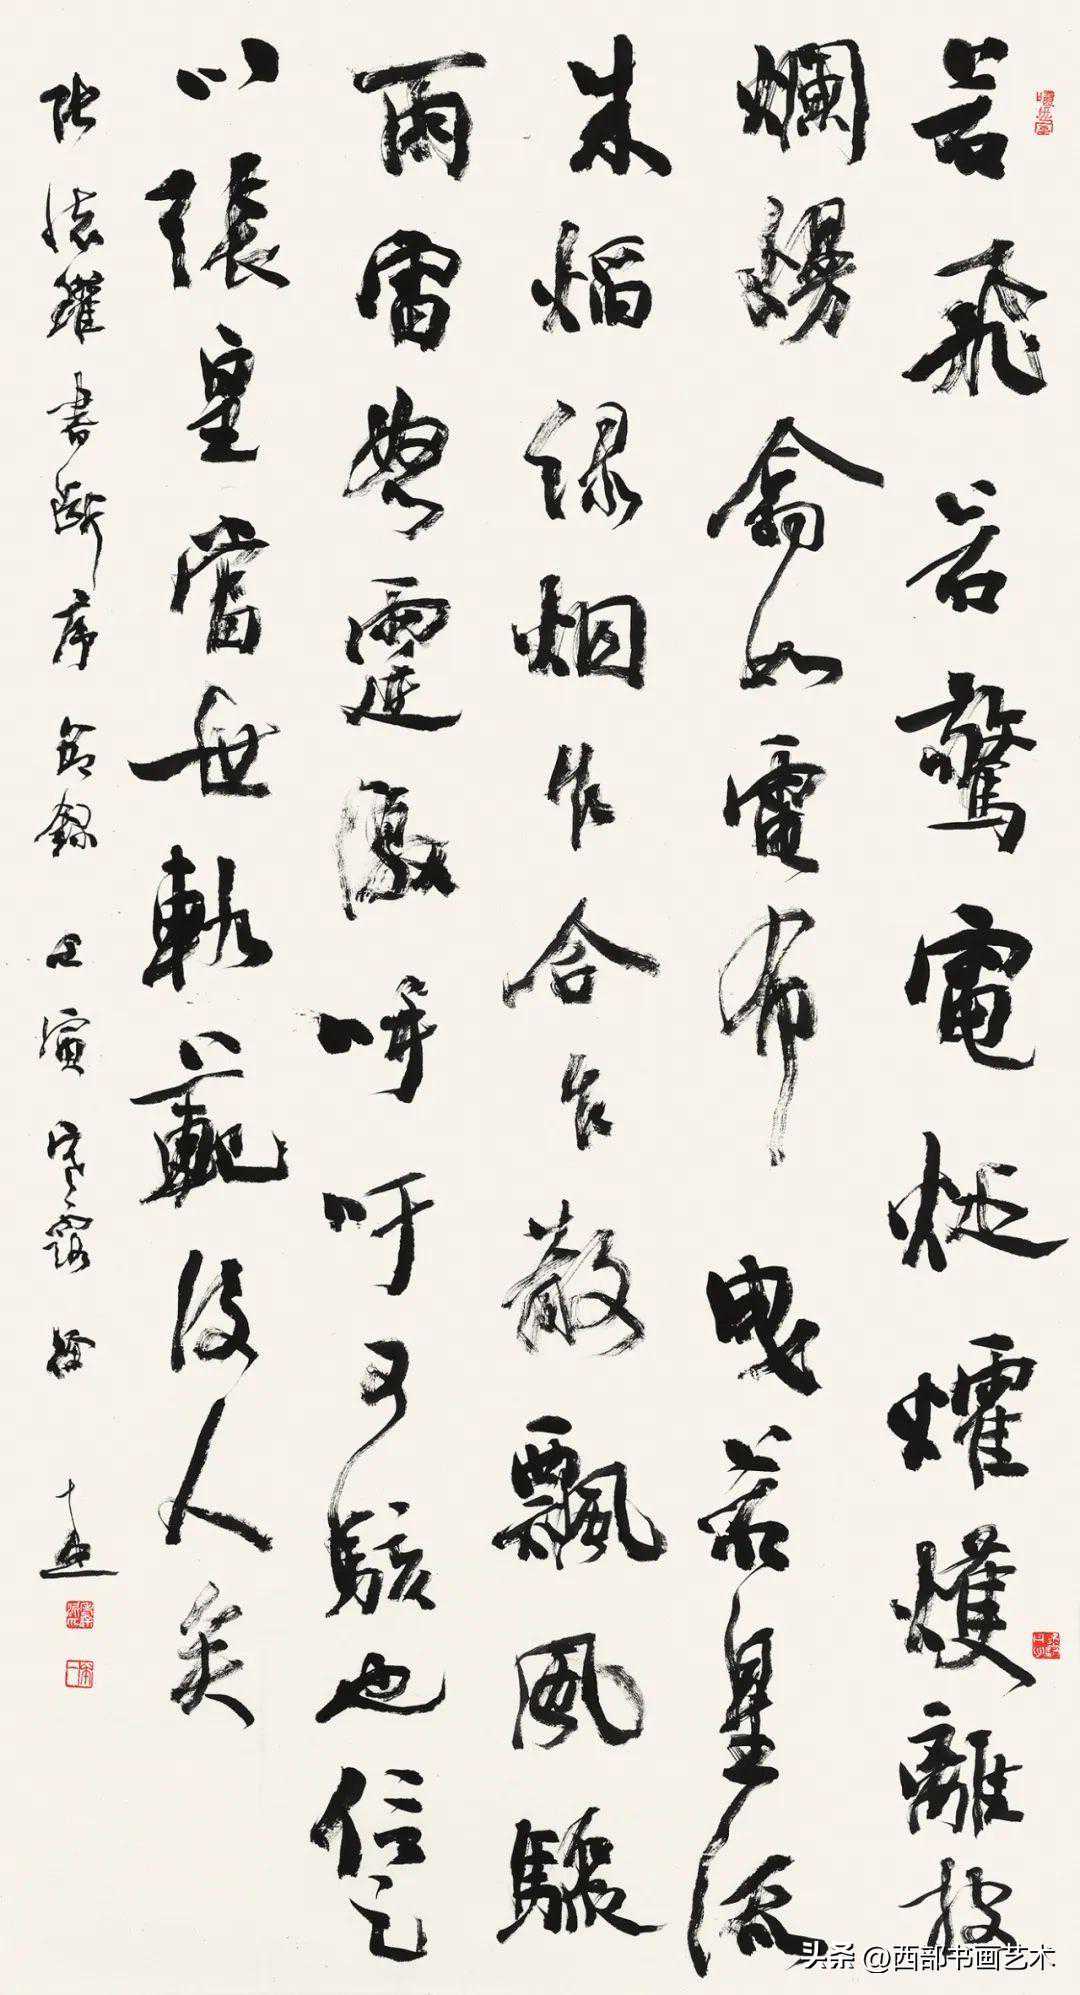 若飞若驚電炫燿爔離披
爛熳翕如電布曳若星流
朱焰绿烟乍合乍散飄風驟
雨雷怒霆激呼吁可駭也信乞
以張皇當世軌範後人矣
張懷瓘書斷序 節録 壬寅寒露 後 建
头条 @西部书画艺术